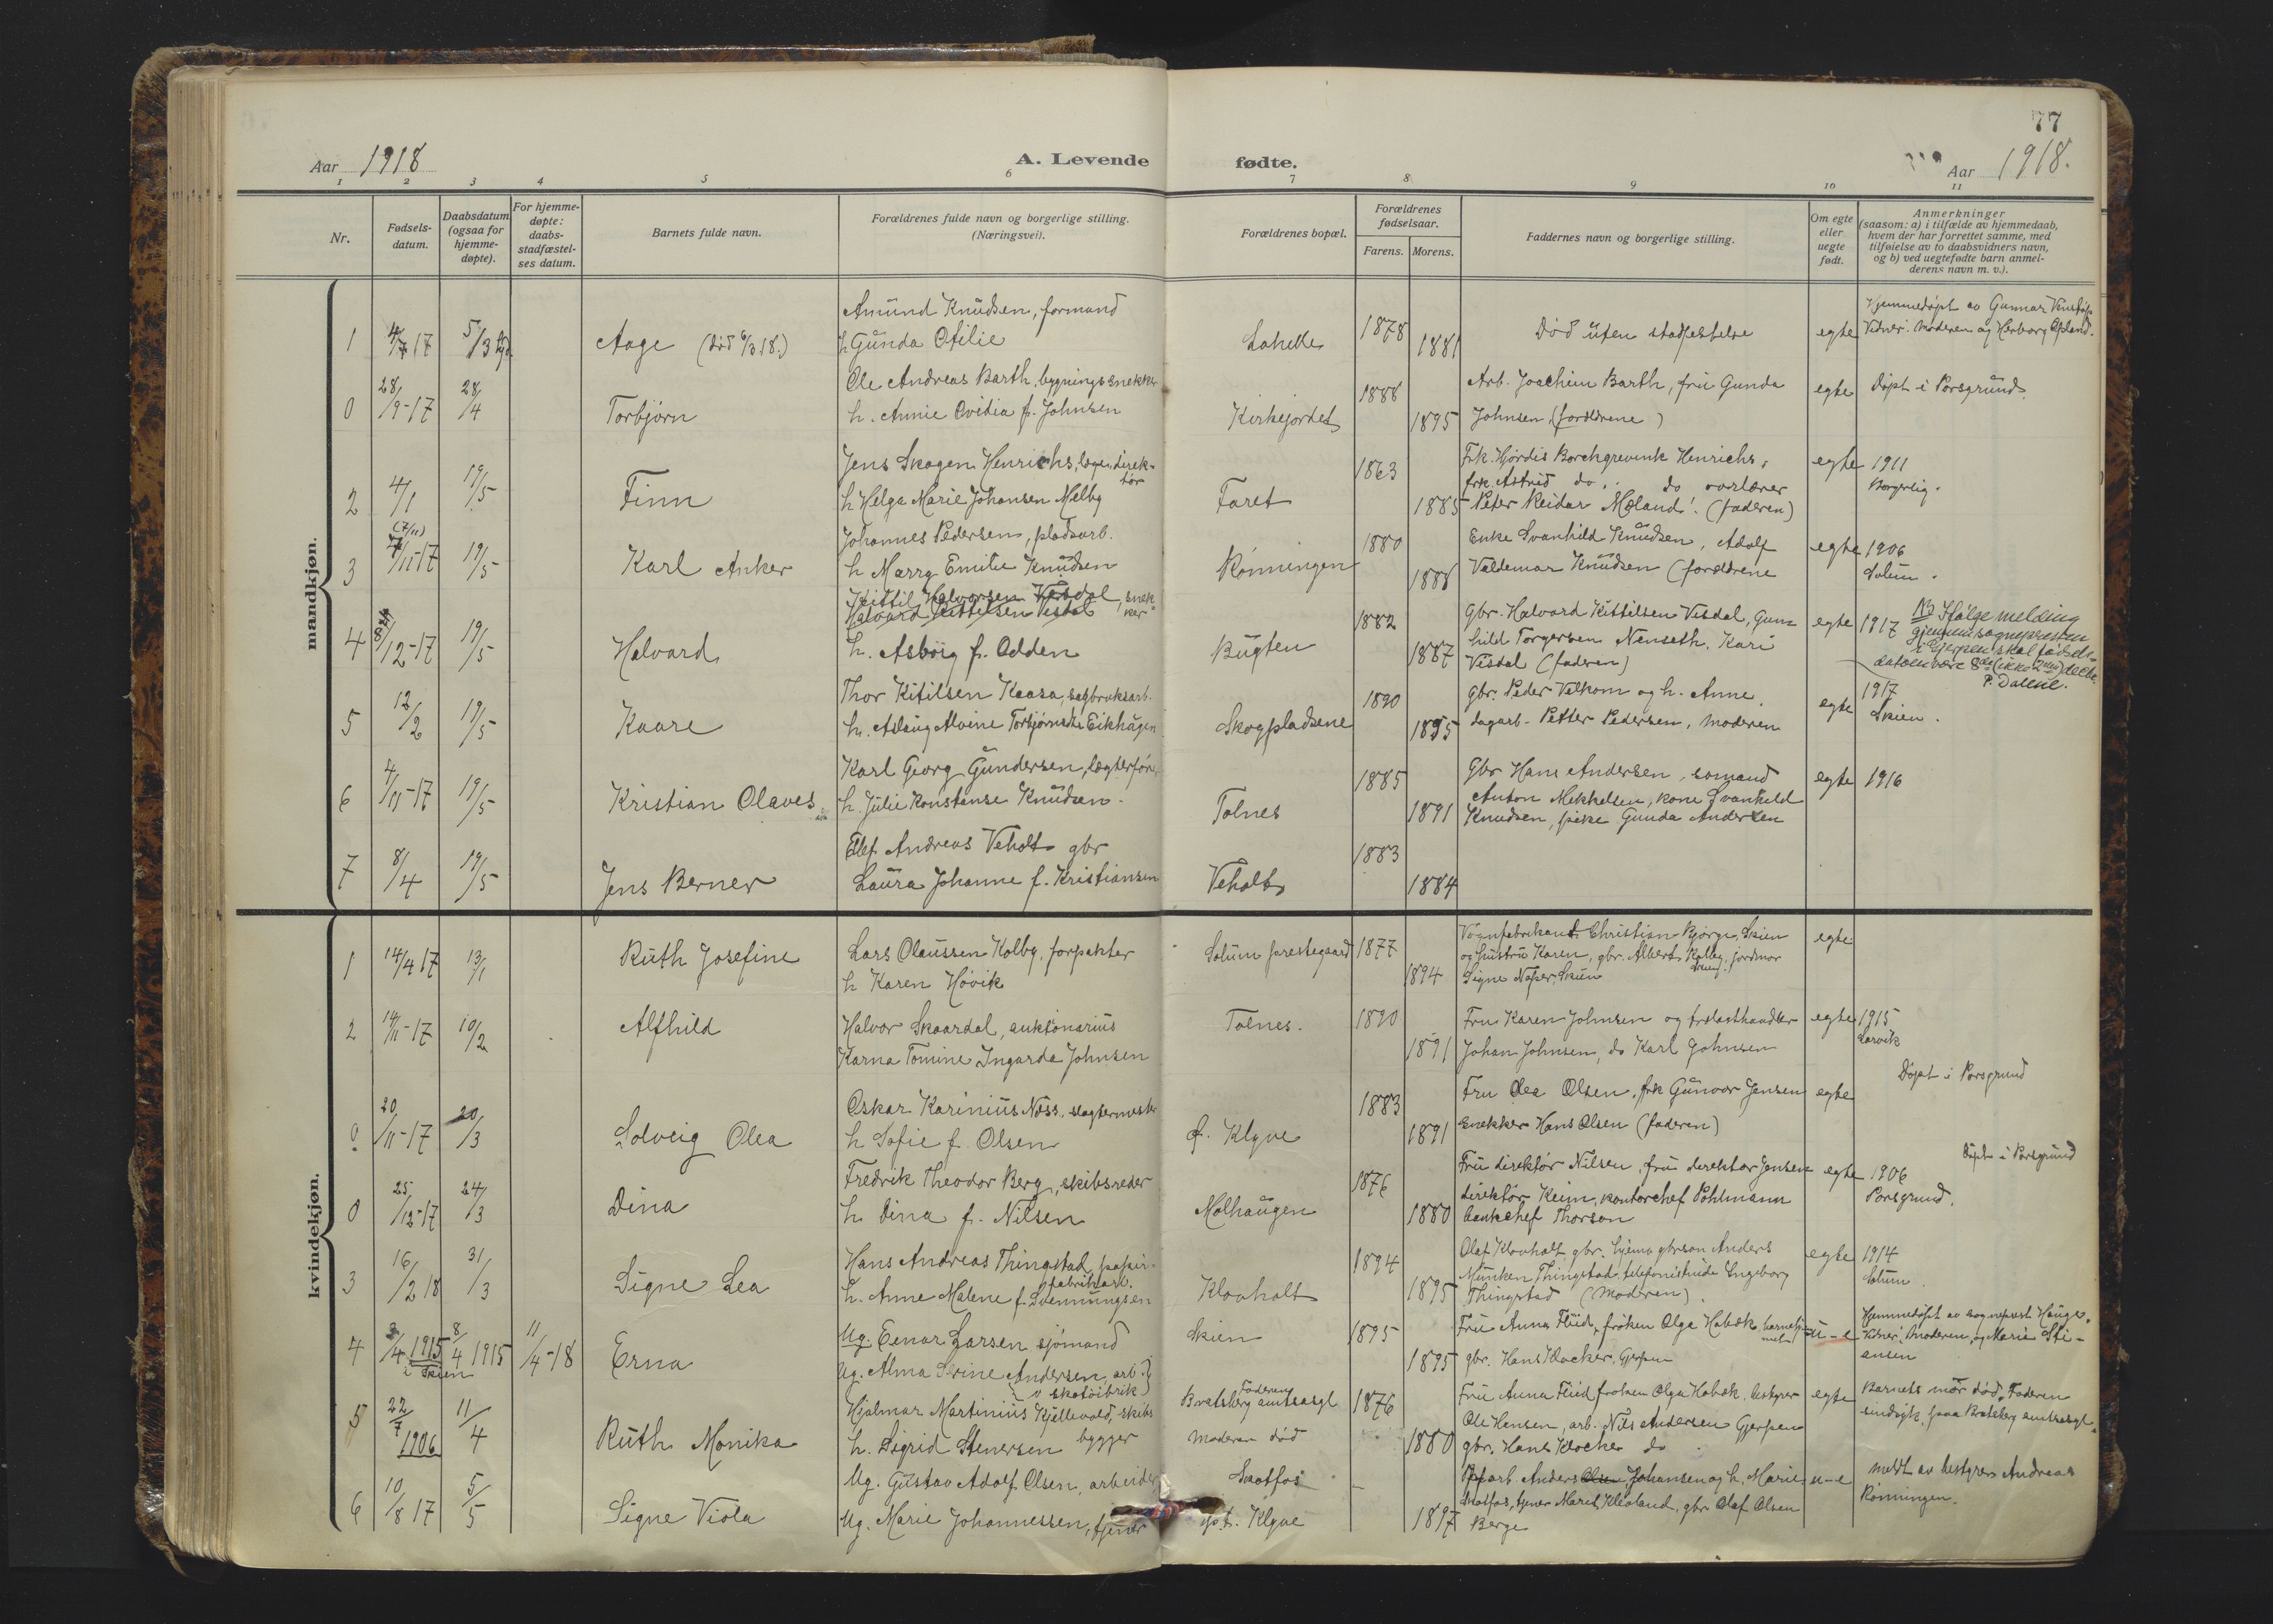 77
Aar 1918
A. Levende fødte.
Aar 1918.
1 2 3 4 5 6 7 8 9 10 11
Nr.
Fødsels-datum.
Daabsdatum (ogsaa for hjemme-døpte).
For hjemme-døpte: daabs-stadfæstel-ses datum.
Barnets fulde navn.
Forældrenes fulde navn og borgerlige stilling. (Næringsvei).
Forældrenes bopæl.
Forældrenes fødselsaar.
Farens. Morens.
Faddernes navn og borgerlige stilling.
Om egte eller uegte født.
Anmerkninger (saasom: a) i tilfælde av hjemmedaab, hvem der har forrettet samme, med tilføielse av to daabsvidners navn, og b) ved uegtefødte barn anmel-derens navn m. v.).
mandkjøn.
Amund Knudsen, formand
1 4/7 17 5/3 Aage (død 6/3 18.) h Gunda Otilie 1878 1881 Død uten stadfestelse egte Hjemmedøpt av Gunnar
Vidner: Moderen og Herborg
Ole Andreas Barth, bygningssnekker
0 28/9-17 28/4 Torbjørn h. Annie Ovidia f. Johnsen Kirkejordet 1888 1895 Arb. Joachim Barth, fru Gunda
Johnsen (forældrene) egte Døpt i Porsgrund.
Jens Skogen Henrichs, direk-
tør
2 4/1 19/5 Finn h Helga Marie Johansen Melby Faret 1863 1885 Frk. Hjørdis Borchgrevink Henrichs,
frk. Astrid do. do overlærer
Peter Reidar Mæland! (faderen) egte 1911
Borgerlig.
Johannes Pedersen, pladsarb.
(7/11)
3 7/11-17 19/5 Karl Anker h Marry Emilie Knudsen Rønningen 1880 1888 Enke Svanhild Knudsen, Adolf
Valdemar Knudsen (forældrene egte 1906
Solum.
Kittil Halvorsen Visdal, snek-
Halvard Kittilsen Visdal ker
4 8/12-17 19/5 Halvard h. Asbörg f. Odden Bugten 1882 1887 Gbr. Halvard Kittilsen Visdal, Gun-
hild Torgersen Nenseth, Kari
Visdal (faderen) egte 1917 NB Ifølge melding
gjennem sognepresten
i Gjerpen skal fødsels-
datoen være 8de (ikke 2den) decbr.
P. Dalene.
Thor Kitilsen Kaasa, sagbruksarb.
5 12/2 19/5 Kaare h. Aslaug Alvine Torbjørnsdtr Eikhaugen Skogpladsene 1890 1895 Gbr. Peder Velkom og h. Anne,
sagarb. Petter Pedersen, moderen egte 1917
Skien.
Karl Georg Gundersen, lægterfører
6 4/11-17 19/5 Kristian Olaves h. Julie Konstanse Knudsen. Tolnes 1885 1891 Gbr Hans Andersen, sømand
Anton Mekkelsen, kone Svanhild
Knudsen, pike Gunda Andersen egte 1916
Elef Andreas Veholt gbr
7 8/4 19/5 Jens Berner Laura Johanne f. Kristiansen Veholt 1883 1884
kvindekjøn.
1 14/4 17 13/1 Ruth Josefine Lars Olaussen Kolby, forpakter
h Karen Høvik Solum prestegaard 1877 1894 Vognfabrikant Christian Bjørge, Skien
og hustru Karen, gbr. Albert Kolby, jordmor
Signe Skien egte
2 14/11-17 10/2 Alfhild Halvor Skaardal, auktionarius
Karna Tomine Ingarda Johnsen Tolnes. 1890 1891 Fru Karen Johnsen og trælasthandler
Johan Johnsen, do Karl Johnsen egte 1915
Larvik
Døpt i Porsgrund
0 20/11-17 20/3 Solveig Olea Oskar Karinius Næss, slagtermester
h Sofie f. Olsen f. Klyve 1883 1891 Fru Olea Olsen, frk Gunvor Jensen
snekker Hans Olsen (faderen) egte
Døpt i Porsgrund
0 25/12-17 24/3 Dina Fredrik Theodor Berg, skibsreder
h. Dina f. Nilsen Molhaugen 1876 1880 Fru direktør Nilsen, fru direktør Jensen
direktør Keim, kontorchef Pohlmann
bankchef Thorson egte 1906
Porsgrund.
3 16/2 18 31/3 Signe Lea Hans Andreas Thingstad, papir-
fabrikarb.
h. Anne Malene f. Svennungsen Klovholt 1894 1895 Olaf Klovholt gbr. hjemv. gbrsøn Anders
Munken Thingstad, telefonistinde Ingeborg
Thingstad (Moderen). egte 1914
Solum.
4 3/4 1915 i Skien 8/4 1915 11/4-18 Erna Ug. Einar Larsen sjømand
Ug. Alma Serine Andersen, arb. i
skotøifabrik) Skien 1895 1895 Fru Anna Flüd, frøken Olga Habæk
gbr. Hans Klocker, Gjerpen u-e Hjemmedøpt av sogneprest Hauge.
Vidner: Moderen, og Marie Sti-
ansen
5 22/7 1906 11/4 Ruth Monika Hjalmar Martinius Kjellevold, skibs
bygger
h. Sigrid Stenersen Faderen
Bratsberg amtsasyl
Moderen død 1876 1880 Fru Anna Flüd frøken Olga Habæk. bestyrer
Ole Hansen, arb. Nils Andersen Gjerpen
gbr. Hans Klocker do egte Barnets mor død. Faderen
sindsyk, paa Bratsberg amtsasyl.
6 10/8 17 5/5 Signe Viola Ug. Gustav Adolf Olsen, arbeider
Ug. Marie Johannessen, tjener Skotfos
Klyve 1897 Papparb. Anders Olsen Johansen og h. Marie
Skotfos, tjener Marit Klevland, gbr Olaf Olsen
Berge u-e meldt av bestyrer Andreas
Rønningen.